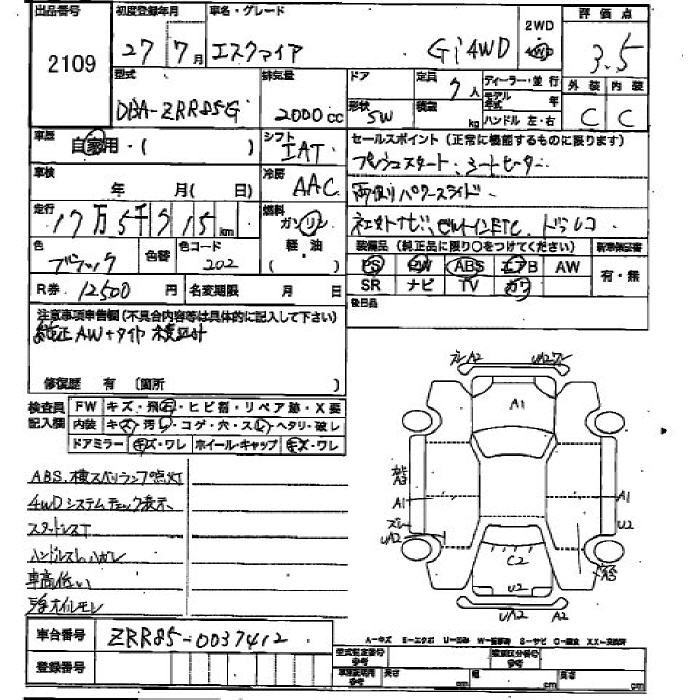 出品番号 初度登録年月 車名・グレード 2WD 評価点
2109 27年7月 エスクァイア Gi 4WD 4WD 3.5
型式 排気量 ドア 定員 7人 ディーラー・並行 外装 内装
DBA-ZRR85G 2000cc 形状 5W 積載 kg モデル年式 年 C C
ハンドル 左・右
車歴 自家用・( ) シフト IAT セールスポイント(正常に機能するものに限ります)
車検 年 月( 日) 冷房 AAC プッシュスタート、シートヒーター
両側パワースライド
走行 17万5千915km 燃料 ガソリン 社外ナビ、ビルトインETC、ドラレコ
色 ブラック 色替 色コード 202 軽・油 ( ) 装備品(純正品に限り○をつけてください) 新車保証書
PS PW ABS エアB AW 有・無
R券 12500円 名変期限 月 日 SR ナビ TV カワ
後日品
注意事項申告欄(不具合内容等は具体的に記入して下さい)
純正AW+タイヤ 検対
修復歴 有(箇所 )
検査員 FW キズ・飛石・ヒビ割・リペア跡・X要
記入欄 内装 キズ・汚レ・コゲ・穴・スレ・ヘタリ・破レ
ドアミラー キズ・ワレ ホイール・キャップ キズ・ワレ
ABS、横スベリランプ点灯
4WDシステムチェック表示、
スタッドレスT
ハンドルスレ、ハガレ
車高低い
オイルモレ
A2 UA2
A1
A1 A1
UA2 U2
C2
U2
UA2 A2
車台番号 ZRR85-0037412
登録番号
A-キズ E-エクボ U-凹み W-補修跡 S-サビ C-腐食 XX-交換済
型式指定番号 参考 類別区分番号 参考
長さ cm 幅 cm 高さ cm